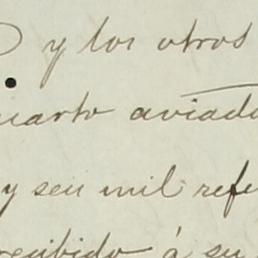 y los otros
uarto aviado
y seu mil refe
recibido á su